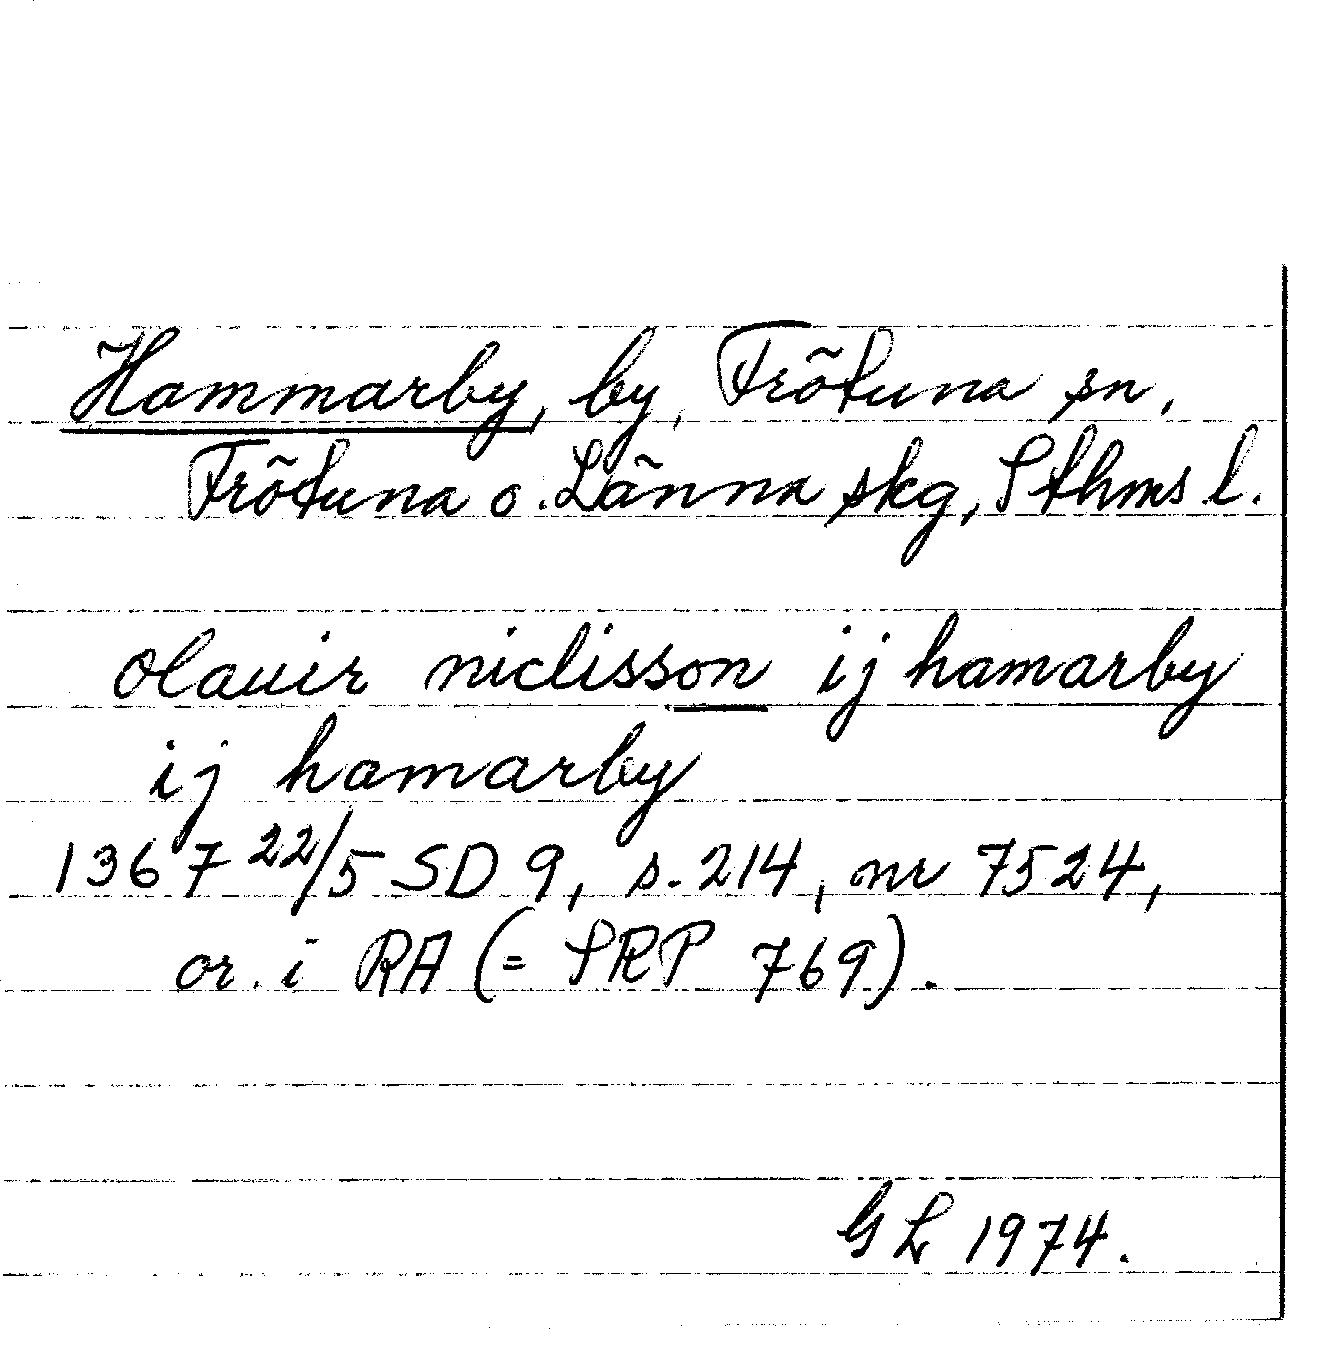 Hammarby, by, Frötuna sn,
Frötuna o. Länna skg, Sthms l.
olauir niclisson ij hamarby
ij hamarby
1367 22/5 SD 9, s. 214, nr 7524,
or. i RA (= SRP 769).
GL 1974.